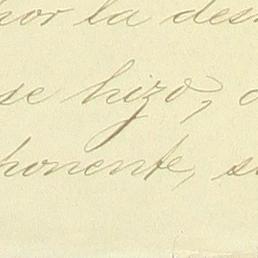 por la des
se hizo,
ponente, s